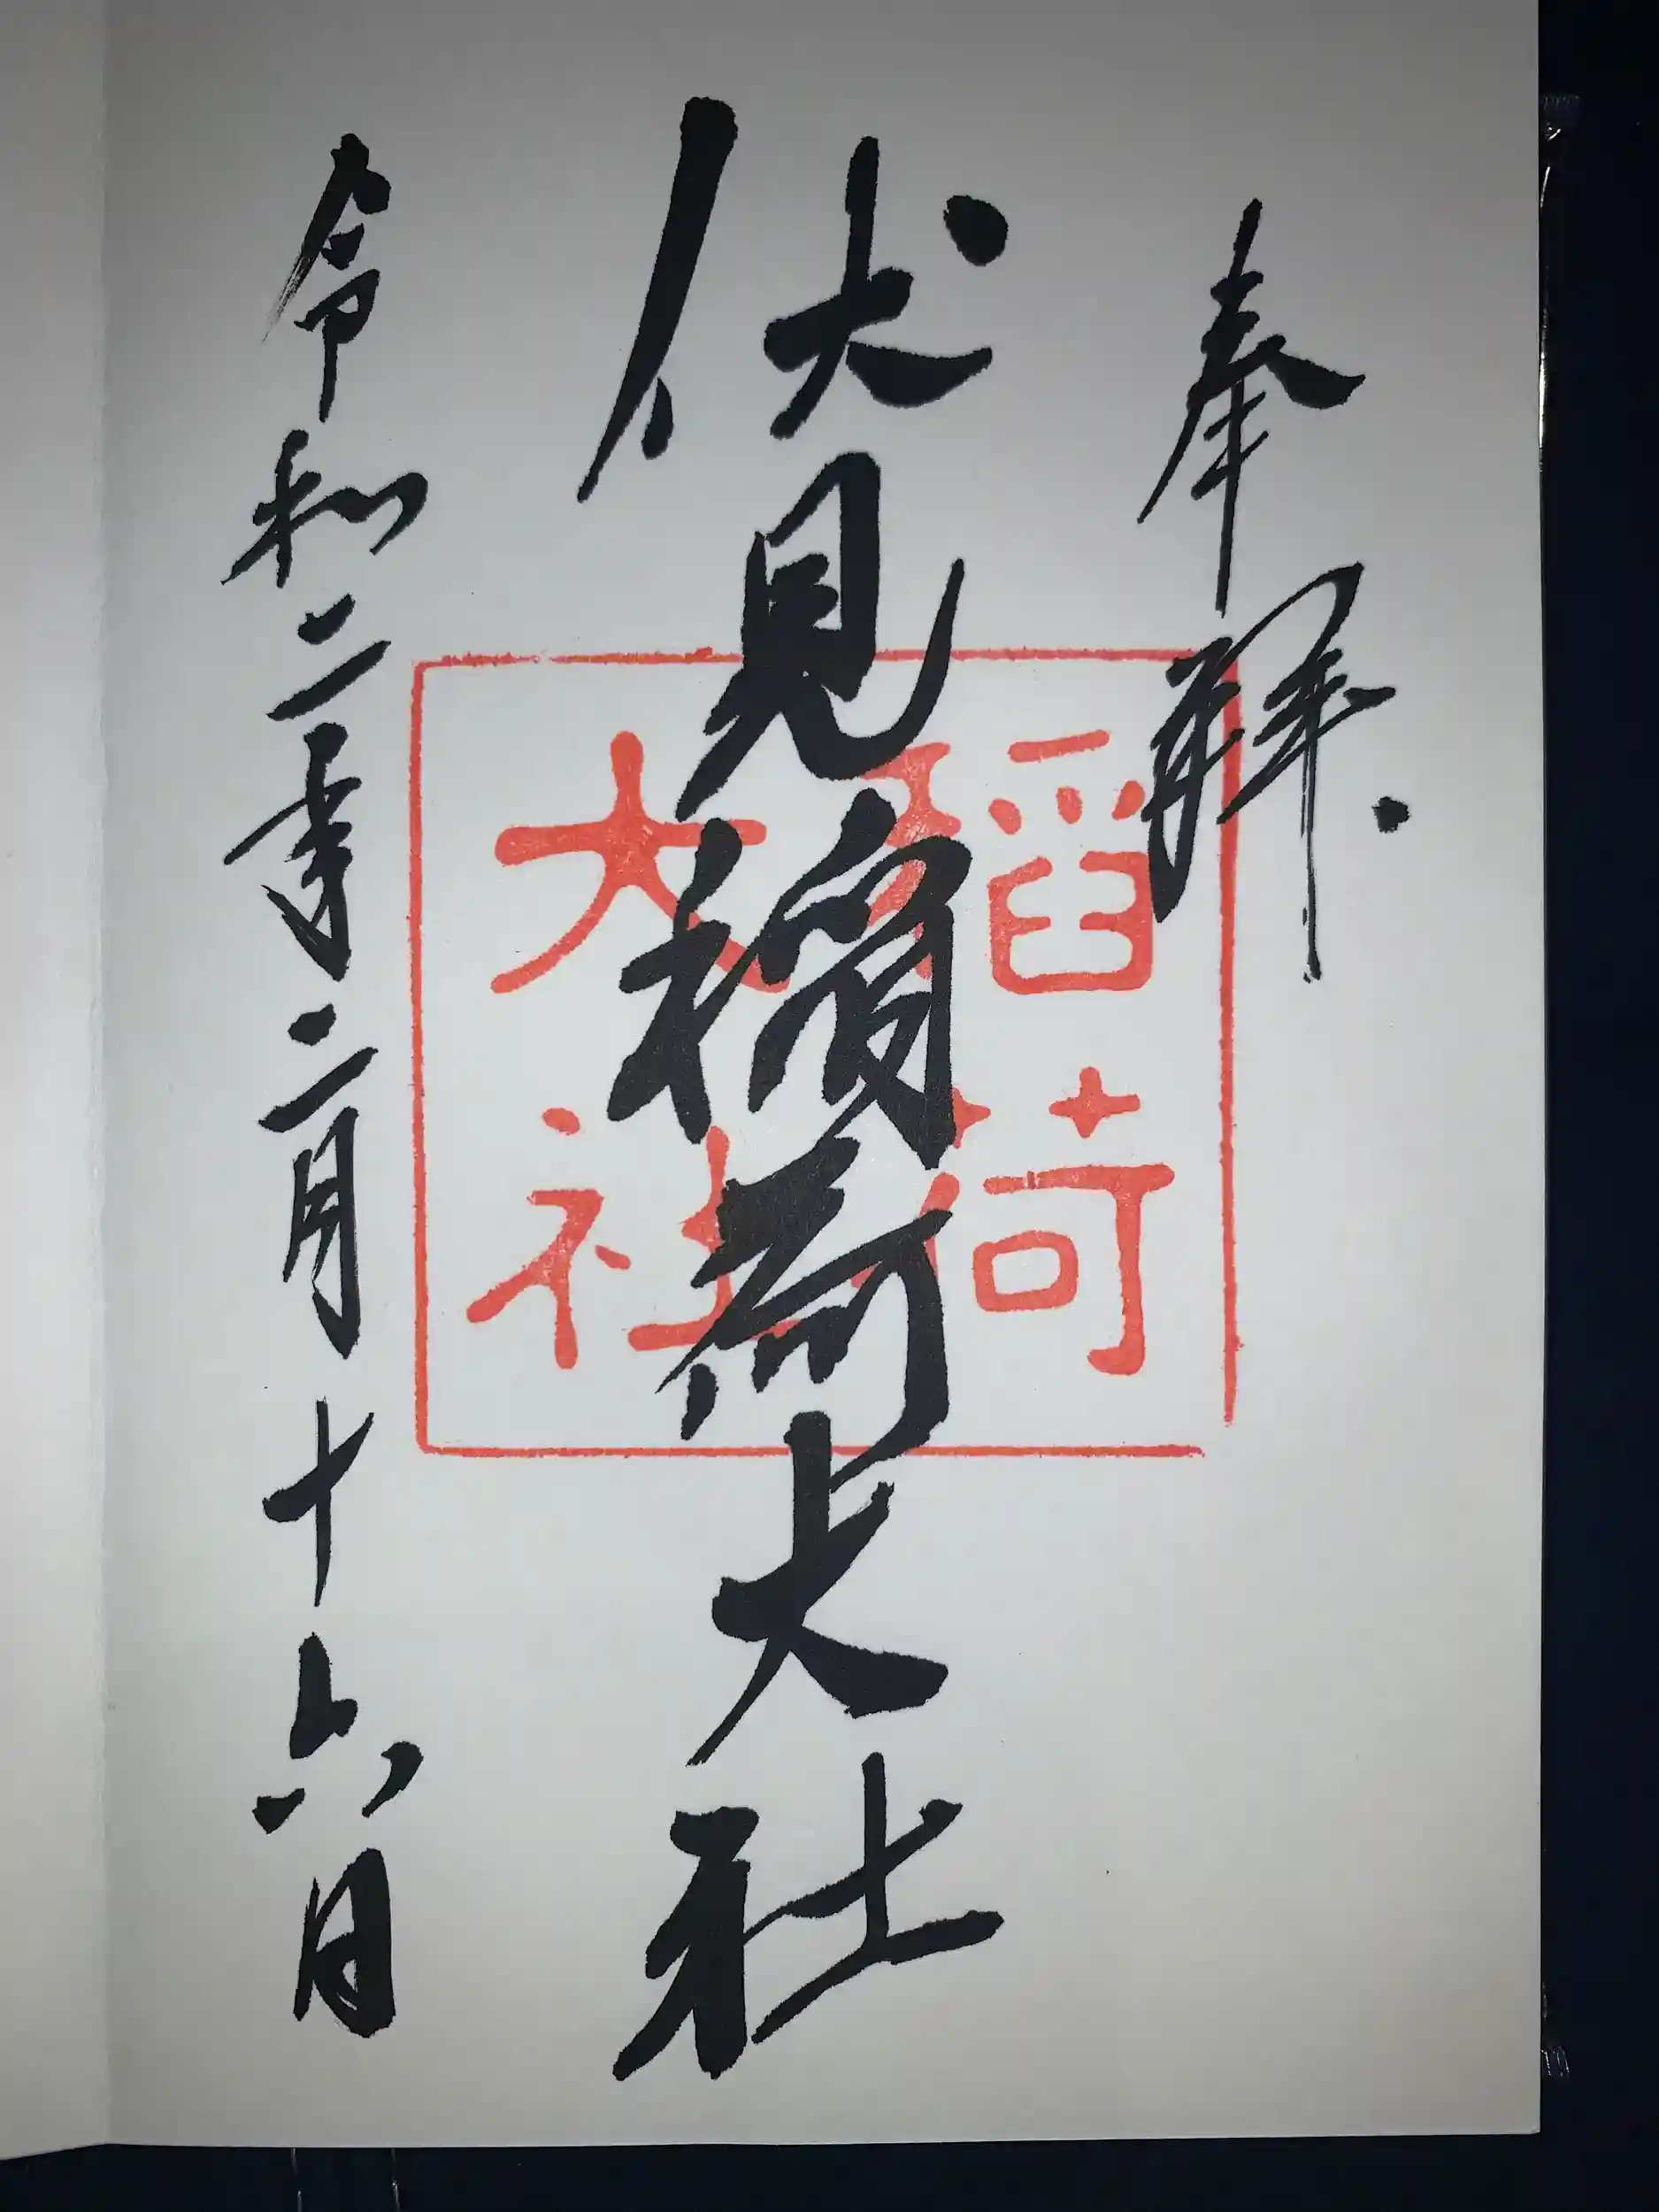 奉拝
伏見稲荷大社
稲荷
大社
令和二年二月十六日